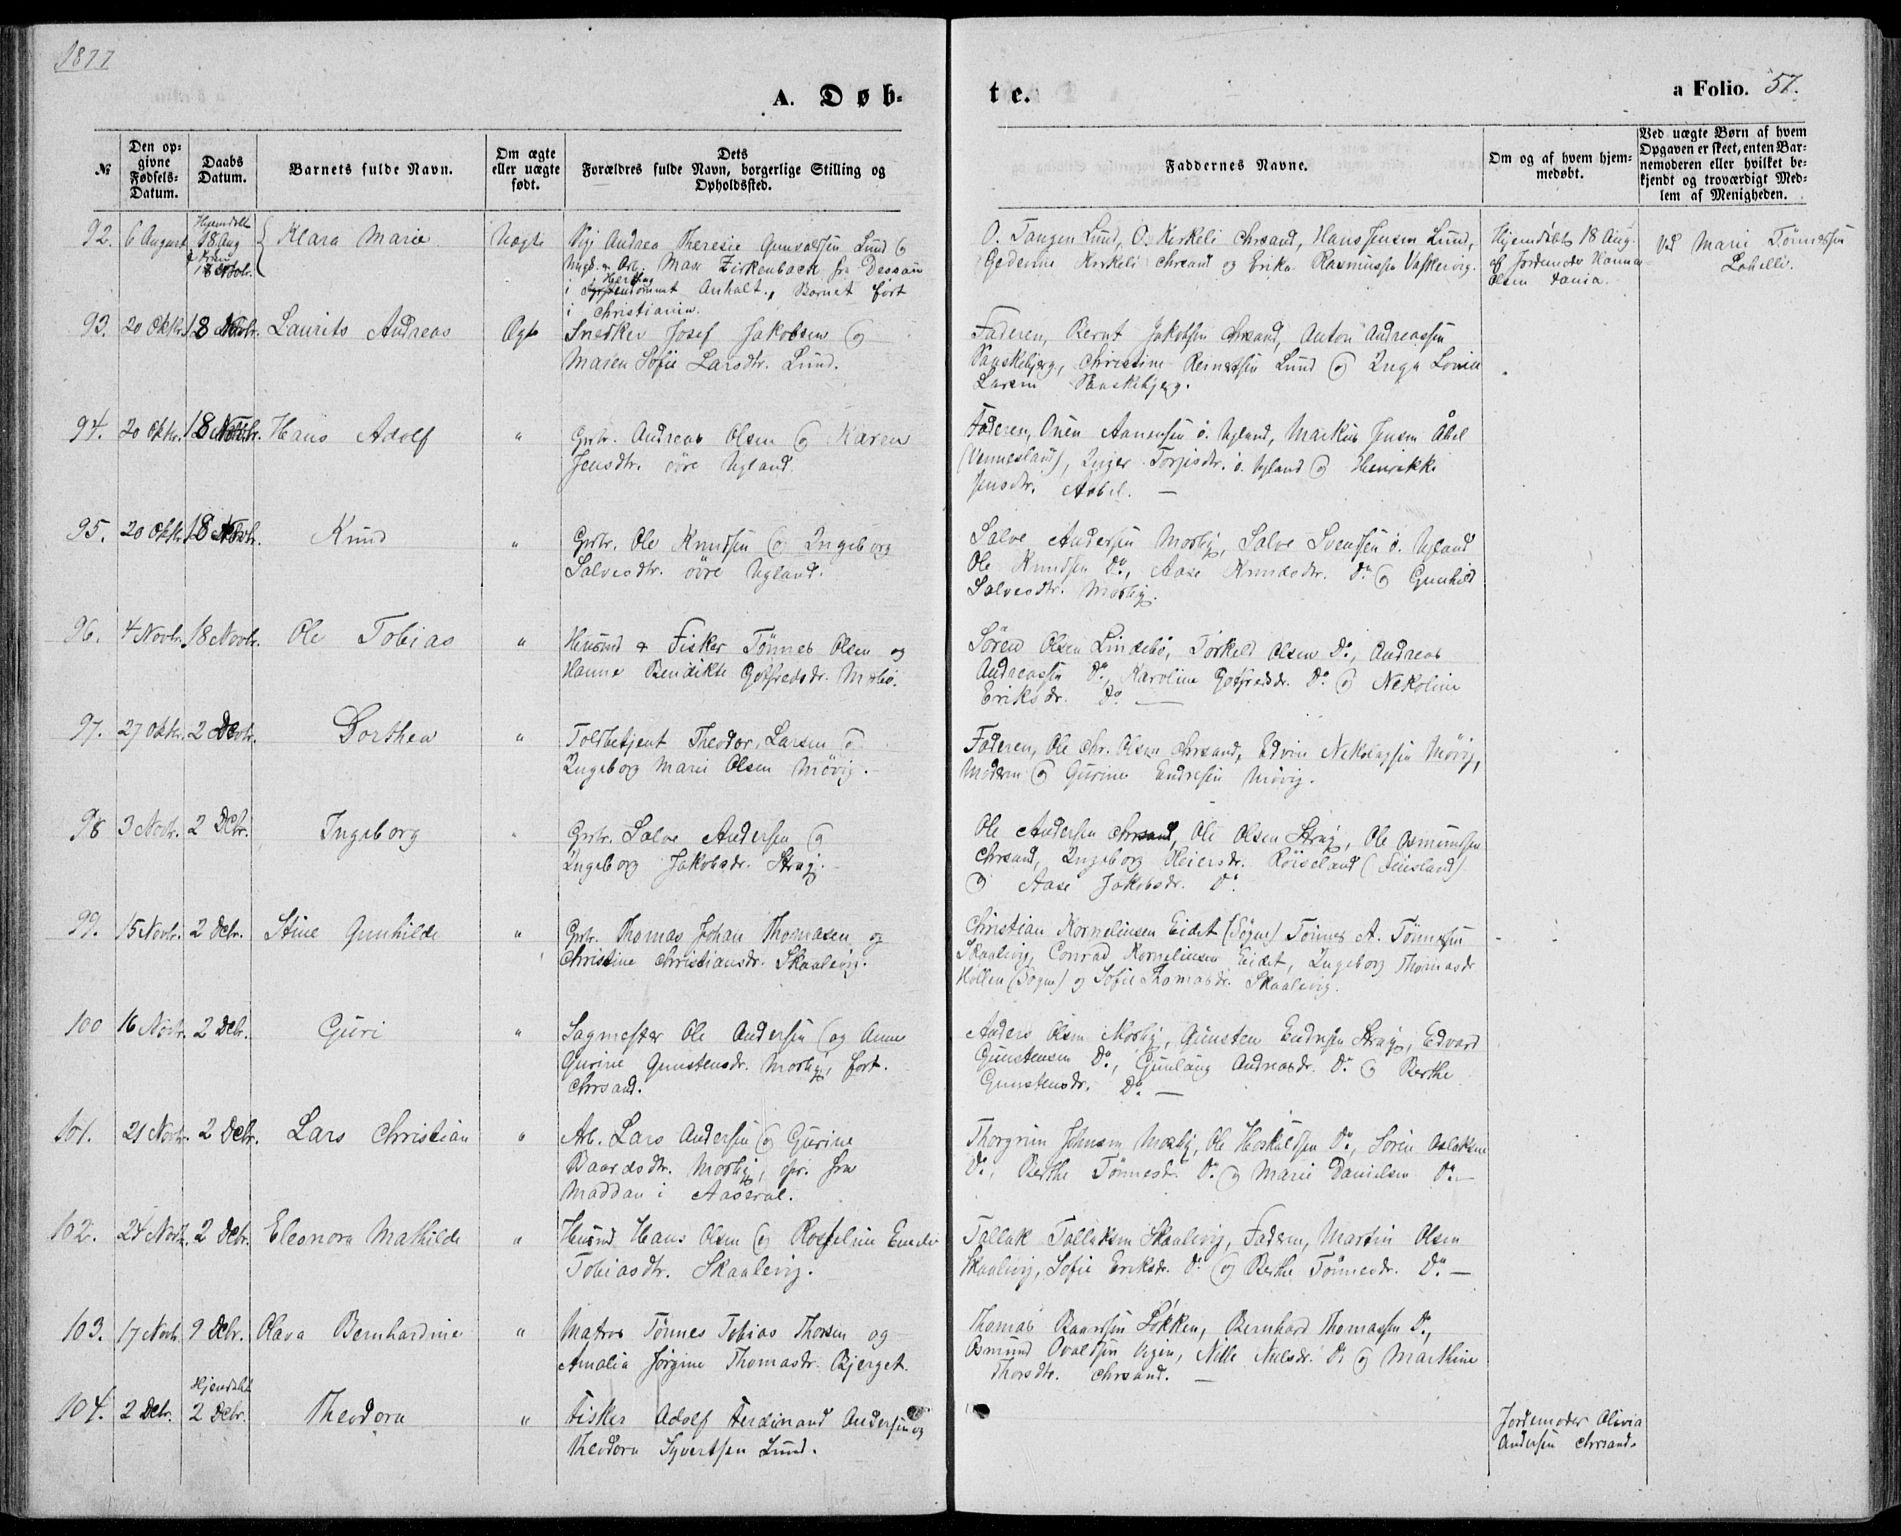 1877
A. Døb-
№
Den op-
givne
Fødsels-
Datum.
Daabs
Datum.
Barnets fulde Navn.
Om ægte
eller uægte
født.
Dets
Forældres fulde Navn, borgerlige Stilling og
Opholdssted.
92. 6 August Hjemdøbt 18 Aug 18 Novbr. Klara Marie Uægte Pige Andrea Theresie Gunvaldsen Lund &
Ungk. & Arb. Max Zirkenback fra Dessau
i Hertug Anhalt., Barnet født
i Christiania.
93. 20 Oktbr. 18 Novbr. Laurits Andreas Ægte Snedker Josef Jakobsen og
Maren Sofie Larsdtr. Lund.
94. 20 Oktbr. 18 Novbr. Hans Adolf " Grbr. Andreas Olsen og Karen
Jensdtr. øvre Ugland.
95. 20 Oktbr. 18 Novbr. Knud " Grbr. Ole Knudsen og Ingeborg
Salvesdtr. øvre Ugland.
96. 4 Novbr. 18 Novbr. Ole Tobias " Husmd & Fisker Tönnes Olsen og
Hanne Bendikte Gotfredsdr.
97. 27 Oktbr. 2 Debr. Dorthea " Toldbetjent Theodor Larsen og
Ingeborg Marie Olsen Mövig.
98 3 Novbr. 2 Debr. Ingeborg " Grbr. Salve Andersen og
Ingeborg Jakobsdr. Stray.
99. 15 Novbr. 2 Debr. Stine Gunhilde " Grbr. Thomas Johan Thomasen og
Christine Christiansdr. Skaalevig.
100 16 Novbr. 2 Debr. Guri " Sagmester Ole Andersen og Anne
Gurine Gunstensdr. Mosby, født.
Chrsand.
101. 21 Novbr. 2 Debr. Lars Christian " Arb. Lars Andersen og Gurine
Baardsdtr. Mosby, opr. fra
Maddan i Aaseral.
102. 24 Novbr. 2 Debr. Eleonora Mathilde " Husmd Hans Olsen og Roseline
Tobiasdtr. Skaalevig.
103. 17 Novbr. 9 Debr. Olava Bernhardine " Matros Tönnes Tobias Thorsen og
Amalia Jörgine Thomasdr. Bjerget.
104. 2 Debr. Hjemdøbt 2 Debr. Theodora " Fisker Adolf Ferdinand Andersen og
Theodora Syvertsen Lund.
te.
a Folio. 57.
Faddernes Navne.
Om og af hvem hjem-
medøbt.
Ved uægte Børn af hvem
Opgaven er skeet, enten Bar-
nemoderen eller hvilket be-
kjendt og troværdigt Med-
lem af Menigheden.
O. Tangen Lund, O. Kirkeli Chrsand, Hans Jensen Lund, Hjemdøbt 18 Aug. Ved Marie Tönnesen
Kirkeli Chrsand og Erika Rasmussen Vaskervig. af Jordemoder Hanna Lahelle.
Olsen Dania.
Faderen, Bernt Jakobsen Chrsand, Anton Andreassen
Christine Berntsen Lund og Inga Lovise
Larsen
Faderen, Onen Aanensen ö. Ugland, Markus Jensen Åbel
(Vennesland), Inger Torjusdtr. ö. Ugland og Henrikke
Jensdtr. Aabel. —
Salve Andersen Mosby, Salve Svensen ö. Ugland
Ole Knudsen Do., Aase Knudsdtr. Do. og Gunhild
Salvesdtr. Mosby.
Sören Olsen Lindebö, Torkeld Olsen Do., Andreas
Andreassen Do., Karoline Gotfredsdr. Do. og Nekoline
Eriksdr. Do. —
Faderen, Ole Chr. Olsen Chrsand, Edvin Nekolaysen Mövig,
Moderen og Gurine Endresen Mövig.
Ole Andersen Chrsand, Ole Olsen Stray, Ole Osmundsen
Chrsand, Ingeborg Reiersdr. Röiseland (Finsland)
og Aase Jakobsdr. Do.
Christian Kornelinsen Eidet (Sögne) Tönnes A. Tönnesen
Skaalevig, Conrad Kornelinsen Eidet, Ingeborg Thomasdr
Höllen (Sögne) og Sofie Thomasdr. Skaalevig.
Anders Olsen Mosby, Gunsten Endresen Stray, Edvard
Gunstensen Do., Gunlaug Andreasdr. Do. og Berthe
Gunstensdr. Do. —
Thorgrim Johnsen Mosby, Ole Do., Sören Aslaksen
Do., Berthe Tönnesdr. Do. og Marie Danielsen Do. —
Tallak Tallaksen Skaalevig, Faderen, Martin Olsen
Skaalevig, Sofie Eriksdr. Do. og Berthe Tönnesdr. Do. —
Thomas Baardsen Lökken, Bernhard Thomassen Do.,
Osmund Nille Nielsdr. Do. og Marthine
Thorsdtr. Chrsand. —
Jordemoder Olivia
Andersen Chrsand.